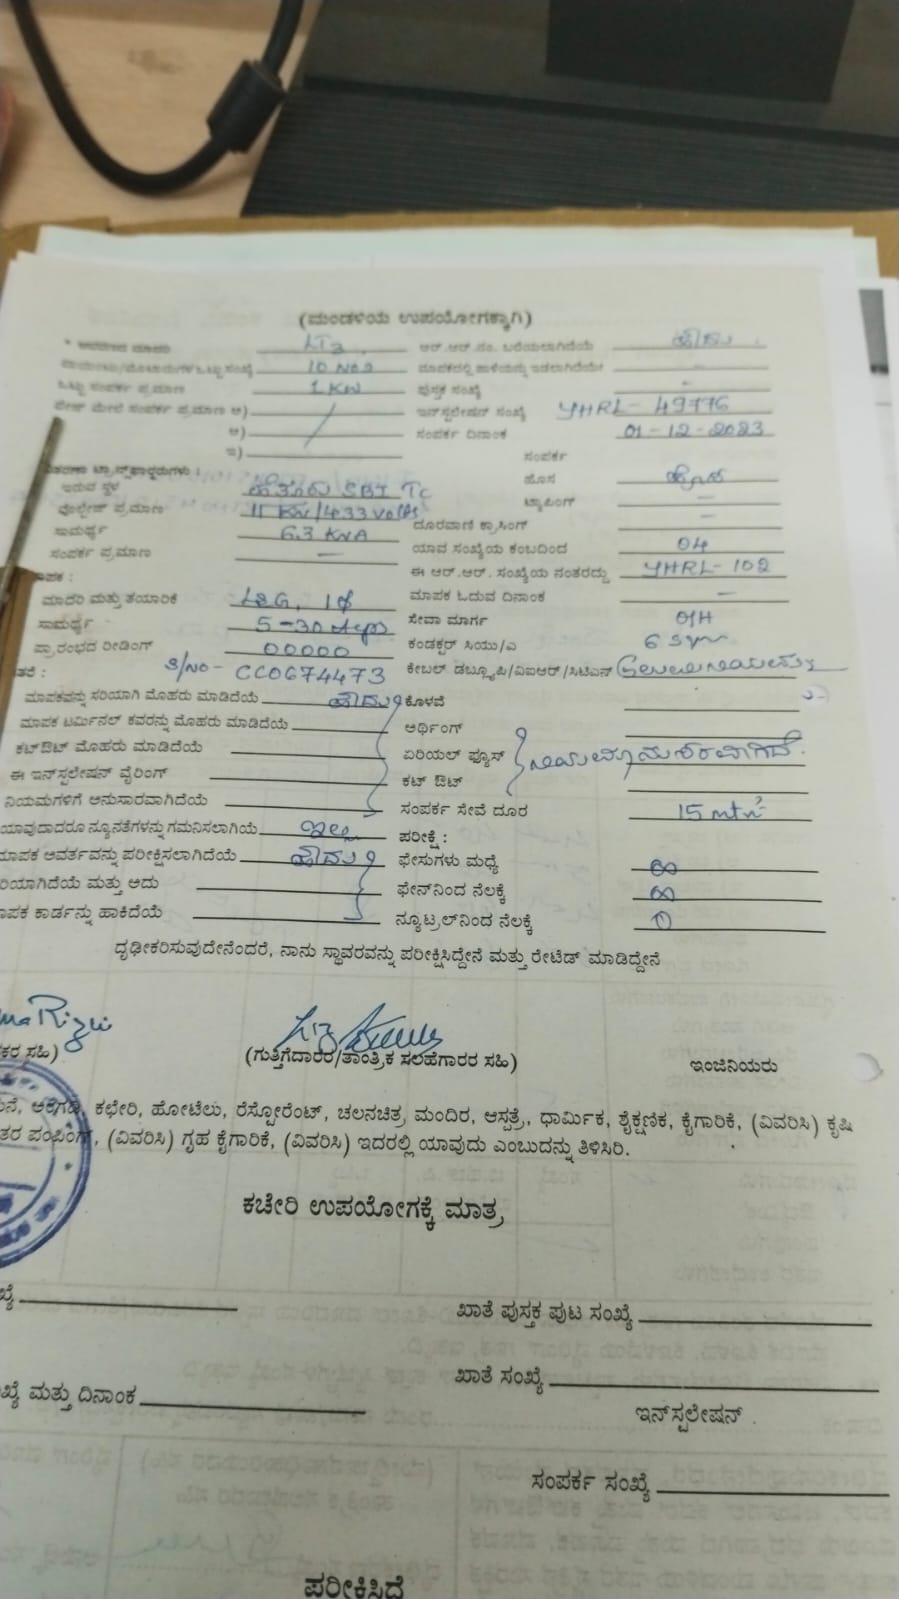 (ಮಂಡಳಿಯ ಉಪಯೋಗಕ್ಕಾಗಿ)
LT3 ಆರ್.ಆರ್.ನಂ. ಬರೆಯಲಾಗಿದೆಯೆ ಹೌದು
10 No2
ಒಟ್ಟು ಸಂಪರ್ಕ ಪ್ರಮಾಣ 1 KW ಪುಸ್ತಕ ಸಂಖ್ಯೆ -
ಇನ್‌ಸ್ಪಲೇಷನ್ ಸಂಖ್ಯೆ YHRL- 49776
ಆ) ಸಂಪರ್ಕ ದಿನಾಂಕ 01-12-2023
ಇ) ಸಂಪರ್ಕ
ಇರುವ ಸ್ಥಳ SBI TC ಹೊಸ ಹೊಸ
ವೋಲ್ಟೇಜ್ ಪ್ರಮಾಣ 11 KV/433 Volts ಟ್ಯಾಪಿಂಗ್ -
ಸಾಮರ್ಥ್ಯ 63 KVA ದೂರವಾಣಿ ಕ್ರಾಸಿಂಗ್ -
ಸಂಪರ್ಕ ಪ್ರಮಾಣ - ಯಾವ ಸಂಖ್ಯೆಯ ಕಂಬದಿಂದ 04
ಈ ಆರ್.ಆರ್. ಸಂಖ್ಯೆಯ ನಂತರದ್ದು YHRL- 102
ಮಾದರಿ ಮತ್ತು ತಯಾರಿಕೆ L&G, 1ϕ ಮಾಪಕ ಓದುವ ದಿನಾಂಕ -
ಸಾಮರ್ಥ್ಯ 5-30 Amps ಸೇವಾ ಮಾರ್ಗ O/H
ಪ್ರಾರಂಭದ ರೀಡಿಂಗ್ 00000 ಕಂಡಕ್ಟರ್ ಸಿಯು/ಎ
S/NO- CC0674473 ಕೇಬಲ್ ಡಬ್ಲ್ಯೂಪಿ/ವಿಐಆರ್/ಸಿಟಿಎನ್
ಮಾಪಕವನ್ನು ಸರಿಯಾಗಿ ಮೊಹರು ಮಾಡಿದೆಯೆ ಹೌದು ಕೊಳವೆ
ಮಾಪಕ ಟರ್ಮಿನಲ್ ಕವರನ್ನು ಮೊಹರು ಮಾಡಿದೆಯೆ ಅರ್ಥಿಂಗ್
ಕಟ್‌ಔಟ್ ಮೊಹರು ಮಾಡಿದೆಯೆ ಏರಿಯಲ್ ಫ್ಯೂಸ್ ನಿಯಮಾನುಸಾರವಾಗಿದೆ.
ಈ ಇನ್‌ಸ್ಪಲೇಷನ್ ವೈರಿಂಗ್ ಕಟ್ ಔಟ್
ನಿಯಮಗಳಿಗೆ ಅನುಸಾರವಾಗಿದೆಯೆ ಸಂಪರ್ಕ ಸೇವೆ ದೂರ 15 mtrs
ಯಾವುದಾದರೂ ನ್ಯೂನತೆಗಳನ್ನು ಗಮನಿಸಲಾಗಿಯೆ ಇಲ್ಲ ಪರೀಕ್ಷೆ :
ಮಾಪಕ ಅವರ್ತವನ್ನು ಪರೀಕ್ಷಿಸಲಾಗಿದೆಯೆ ಹೌದು ಫೇಸುಗಳು ಮಧ್ಯೆ ∞
ರಿಯಾಗಿದೆಯೆ ಮತ್ತು ಅದು ಫೇನ್‌ನಿಂದ ನೆಲಕ್ಕೆ ∞
ಮಾಪಕ ಕಾರ್ಡನ್ನು ಹಾಕಿದೆಯೆ ನ್ಯೂಟ್ರಲ್‌ನಿಂದ ನೆಲಕ್ಕೆ 0
ದೃಢೀಕರಿಸುವುದೇನೆಂದರೆ, ನಾನು ಸ್ಥಾವರವನ್ನು ಪರೀಕ್ಷಿಸಿದ್ದೇನೆ ಮತ್ತು ರೇಟೆಡ್ ಮಾಡಿದ್ದೇನೆ
ಕರ ಸಹಿ) (ಗುತ್ತಿಗೆದಾರರ/ತಾಂತ್ರಿಕ ಸಲಹೆಗಾರರ ಸಹಿ) ಇಂಜಿನಿಯರು
ನೆ, ಅಂಗಡಿ, ಕಛೇರಿ, ಹೋಟೆಲು, ರೆಸ್ಪೋರೆಂಟ್, ಚಲನಚಿತ್ರ ಮಂದಿರ, ಆಸ್ಪತ್ರೆ, ಧಾರ್ಮಿಕ, ಶೈಕ್ಷಣಿಕ, ಕೈಗಾರಿಕೆ, (ವಿವರಿಸಿ) ಕೃಷಿ
ತರ ಪಂಪಿಂಗ್, (ವಿವರಿಸಿ) ಗೃಹ ಕೈಗಾರಿಕೆ, (ವಿವರಿಸಿ) ಇದರಲ್ಲಿ ಯಾವುದು ಎಂಬುದನ್ನು ತಿಳಿಸಿರಿ.
ಕಚೇರಿ ಉಪಯೋಗಕ್ಕೆ ಮಾತ್ರ
ಖ್ಯೆ ಖಾತೆ ಪುಸ್ತಕ ಪುಟ ಸಂಖ್ಯೆ
ಖ್ಯೆ ಮತ್ತು ದಿನಾಂಕ ಖಾತೆ ಸಂಖ್ಯೆ
ಇನ್‌ಸ್ಪಲೇಷನ್
ಸಂಪರ್ಕ ಸಂಖ್ಯೆ
ಪರೀಕಿಸಿದೆ